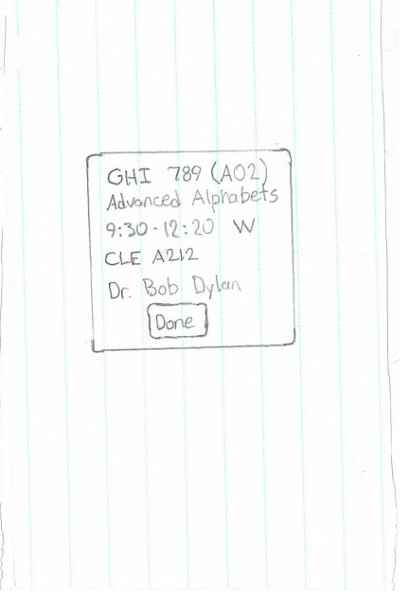 GHI 789 (A02)
Advanced Alphabets
9:30-12:20 W
CLE A212
Dr. Bob Dylan
Done